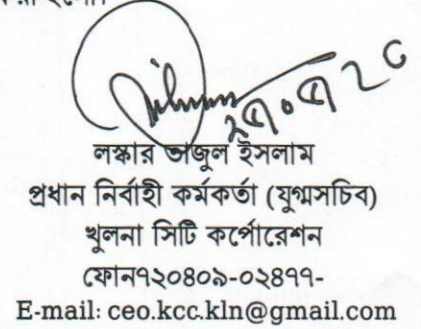 লস্কার তাজুল ইসলাম
প্রধান নির্বাহী কর্মকর্তা (যুগ্মসচিব)
খুলনা সিটি কর্পোরেশন
ফোন৭২০৪০৯-০২৪৭৭-
E-mail: ceo.kcc.kln@gmail.com